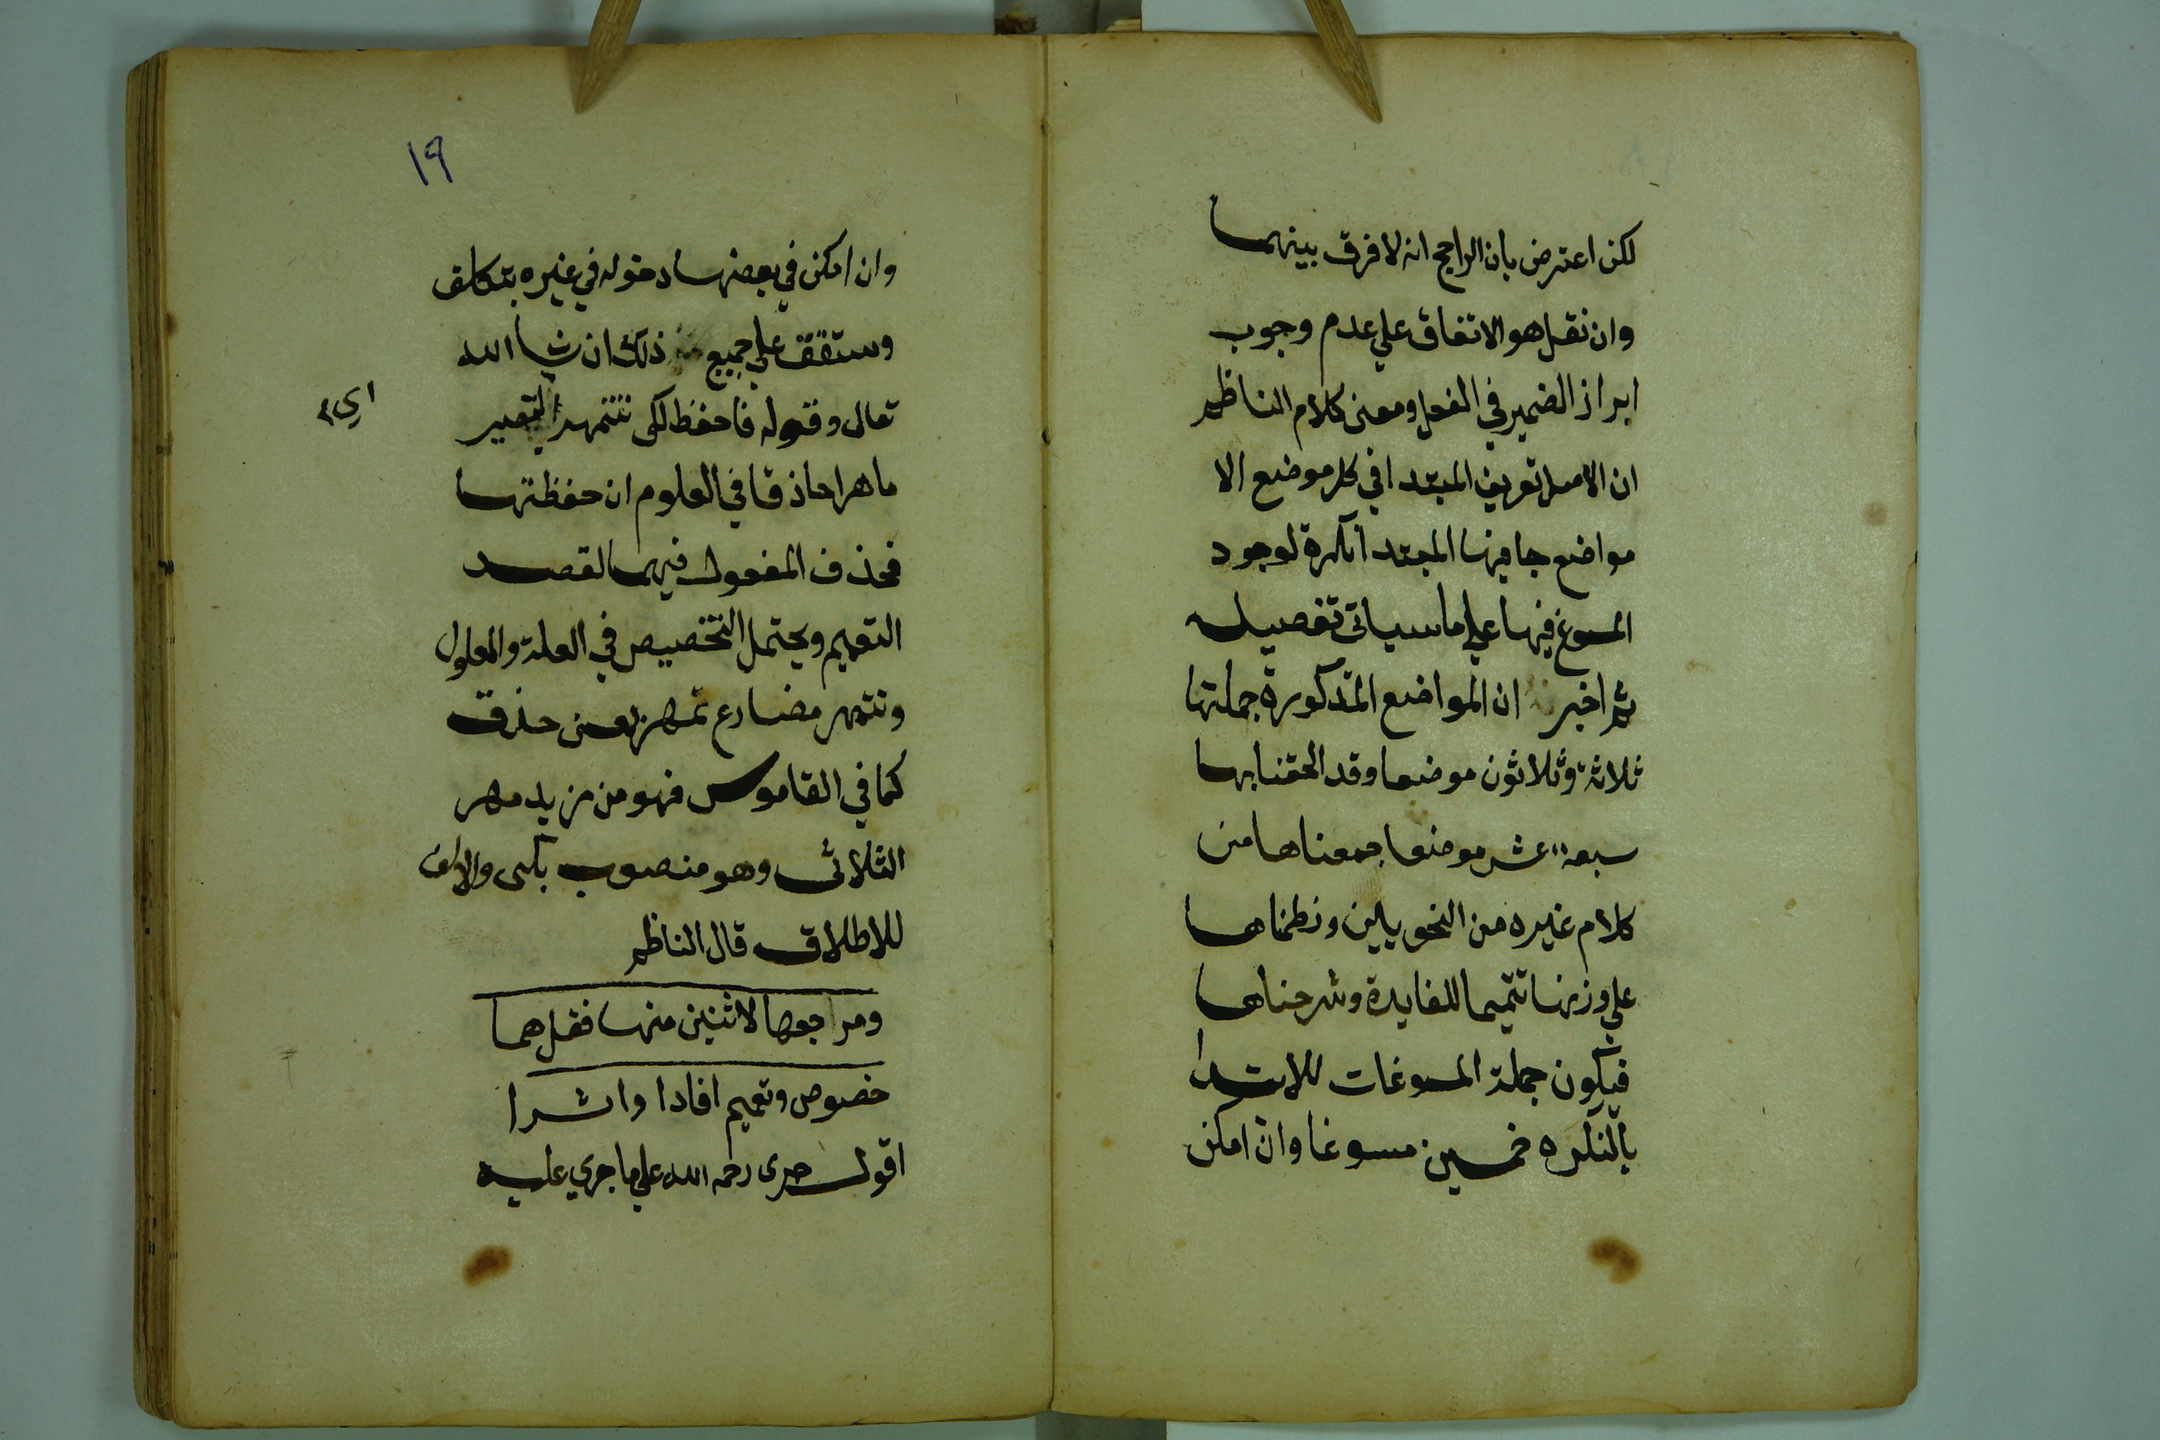 لكن اعترض بان الراجح انه لا فرق بينهما
وان نقل هو الاتفاق علي عدم وجوب
ابراز الضمير في الفعل ومعنى كلام الناظم
ان الاصل تعريف المبتدا في كل موضع الا
مواضع جا فيها المبتدا نكرة لوجود
المسوغ فيها علي ما سياتي تفصيله
ثم اخبر ان المواضع المذكورة جملتها
ثلاثة وثلاثون موضعا وقد الحقنا بها
سبعة عشر موضعا جمعناها من
كلام غيره من النحويين ونظمناها
علي وزنها تتميما للفايدة وشرحناها
فيكون جملة المسوغات للابتدا
بالنكره خمسين مسوغا وان امكن
١٩
وان امكن في بعضها دخوله في غيره بتكلف
وستقف علي جميع ذلك ان شا الله
تعالى وقوله فاحفظ لكى تتمهر التعبير
ماهرا حاذقا في العلوم ان حفظتها
فحذف المفعول فيهما لقصد
التعميم ويحتمل التخصيص في العلة والمعلول
وتتمهر مضارع تمهر بمعنى حذق
كما في القاموس فهو من مزيد مهر
الثلاثى وهو منصوب بكى والالف
للاطلاق قال الناظم
ومراجعها لاثنين منها فقل هما
خصوص وتعميم افادا واثرا
اقول جرى رحمه الله علي ما جري عليه